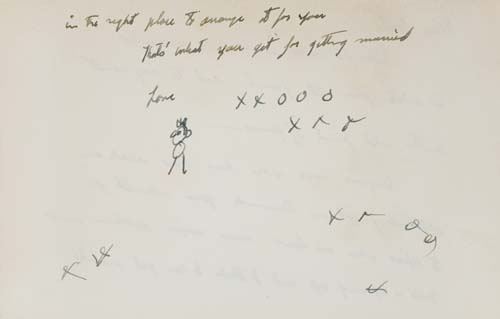 in the right place to arrange it for you
that's what you get for getting married
Love x x o o o
x
x
x